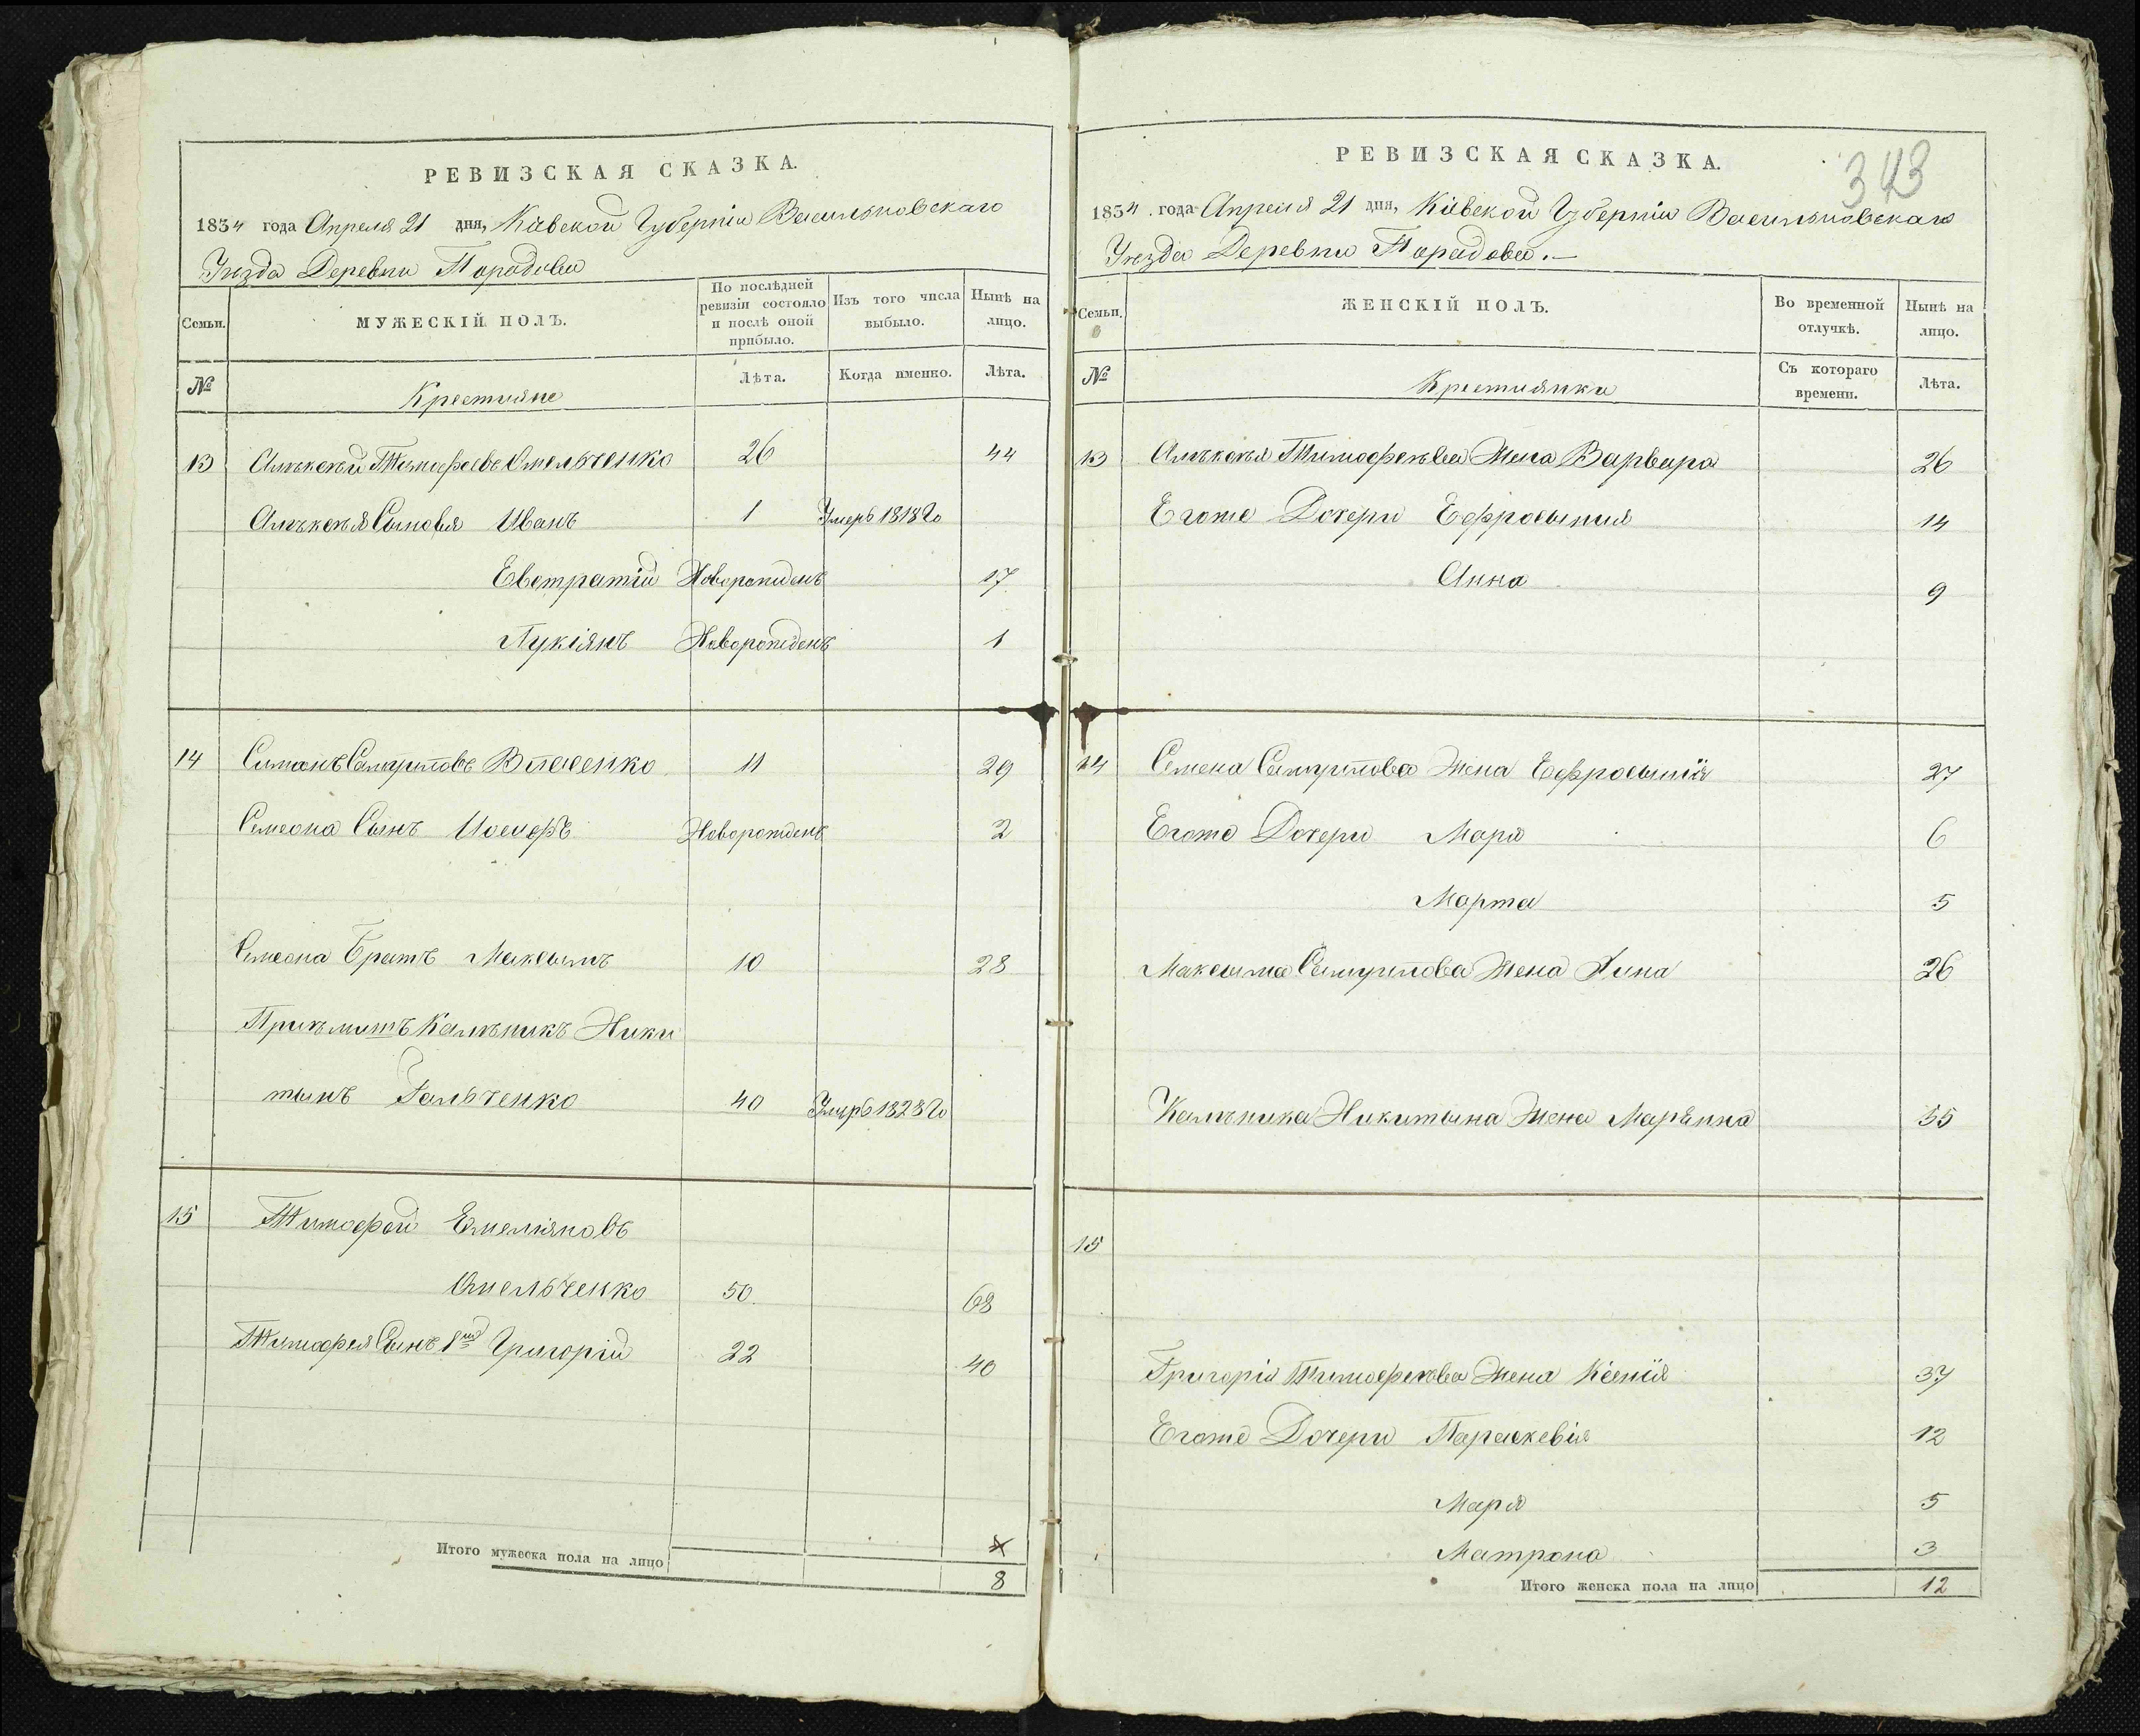 РЕВИЗСКАЯ СКАЗКА.
1834 года Апреля 21 дня, Кіевской Губерніи Васильковскаго
Уезда Деревни Парадовы
Семьи. МУЖЕСКІЙ ПОЛЪ. По послѣдней ревизіи состояло и послѣ оной прибыло. Изъ того числа выбыло. Нынѣ на лицо.
№ Крестияне Лѣта. Когда именно. Лѣта.
13 Алѣксѣй Тимофеевъ Омельченко 26 44
Алѣксѣя Сыновья Иванъ 1 Умеръ 1818 Го
Евстратій Новорожденъ 17
Лукіянъ Новорожденъ 1
14 Симонъ Самуиловъ Власенко 11 29
Семеона Сынъ Иосифъ Новорожденъ 2
Семеона Братъ Максымъ 10 28
Приѣмышъ Калѣникъ Ники
тынъ Гальченко 40 Умеръ 1828 Го
15 Тимофей Емеліяновъ
Омельченко 50 68
Тимофея Сынъ 1й Григорій 22 40
Итого мужеска пола на лицо
8
РЕВИЗСКАЯ СКАЗКА.
343
1834 года Апреля 21 дня, Кіевской Губерніи Васильковскаго
Уезда Деревни Парадовы.—
Семьи. ЖЕНСКІЙ ПОЛЪ. Во временной отлучкѣ. Нынѣ на лицо.
№ Крестиянки Съ котораго времени. Лѣта.
13 Алѣксѣя Тимофеѣва Жена Варвара 26
Егоже Дочери Ефросыния 14
Анна 9
14 Семена Самуилова Жена Ефросынія 27
Егоже Дочери Маря 6
Марта 5
Максыма Самуилова Жена Анна 26
Калѣника Никитына Жена Марянна 55
15
Григорія Тимофеѣва Жена Ксенія 37
Егоже Дочери Параскевія 12
Маря 5
Матрона 3
Итого женска пола на лицо 12